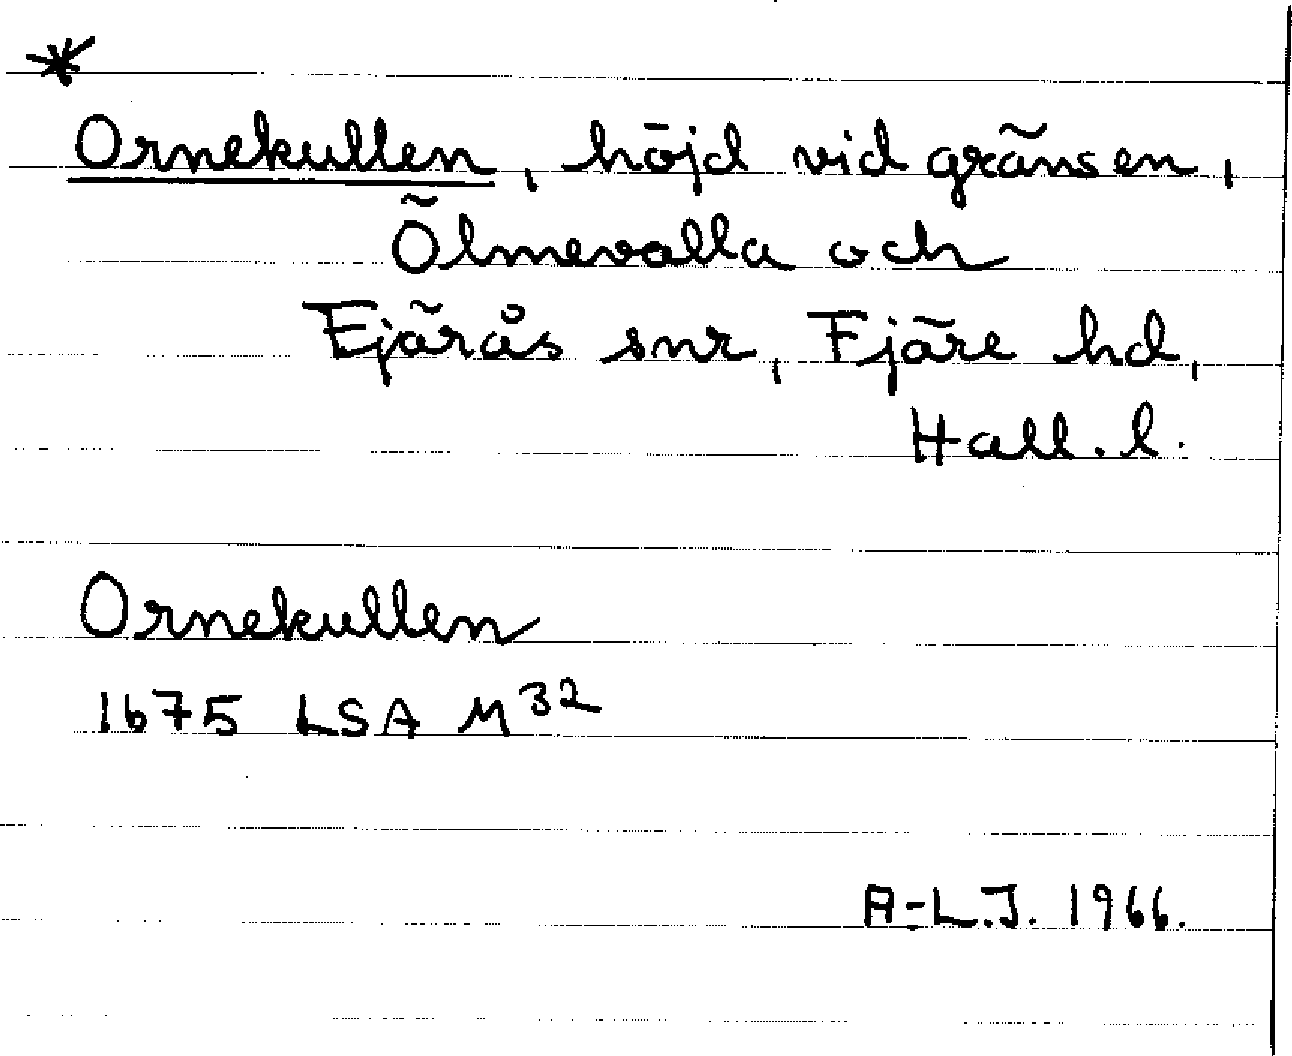 *
Ornekullen, höjd vid gränsen,
Ölmevalla och
Fjärås snr, Fjäre hd,
Hall. l.
Ornekullen
1675 LSA M32
A-L.J. 1966.